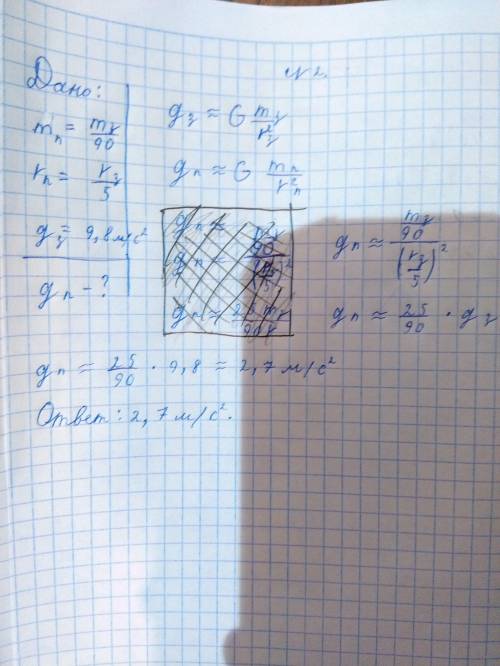 №2.
Дано:
mₙ = mз/90
rₙ = rз/5
gз = 9,8 м/с²
gₙ - ?
gз ≈ G mз/r²з
gₙ ≈ G mₙ/r²ₙ
gₙ ≈ (mз/90)/(rз/5)²
gₙ ≈ 25/90 · gз
gₙ ≈ 25/90 · 9,8 ≈ 2,7 м/с²
Ответ: 2,7 м/с².